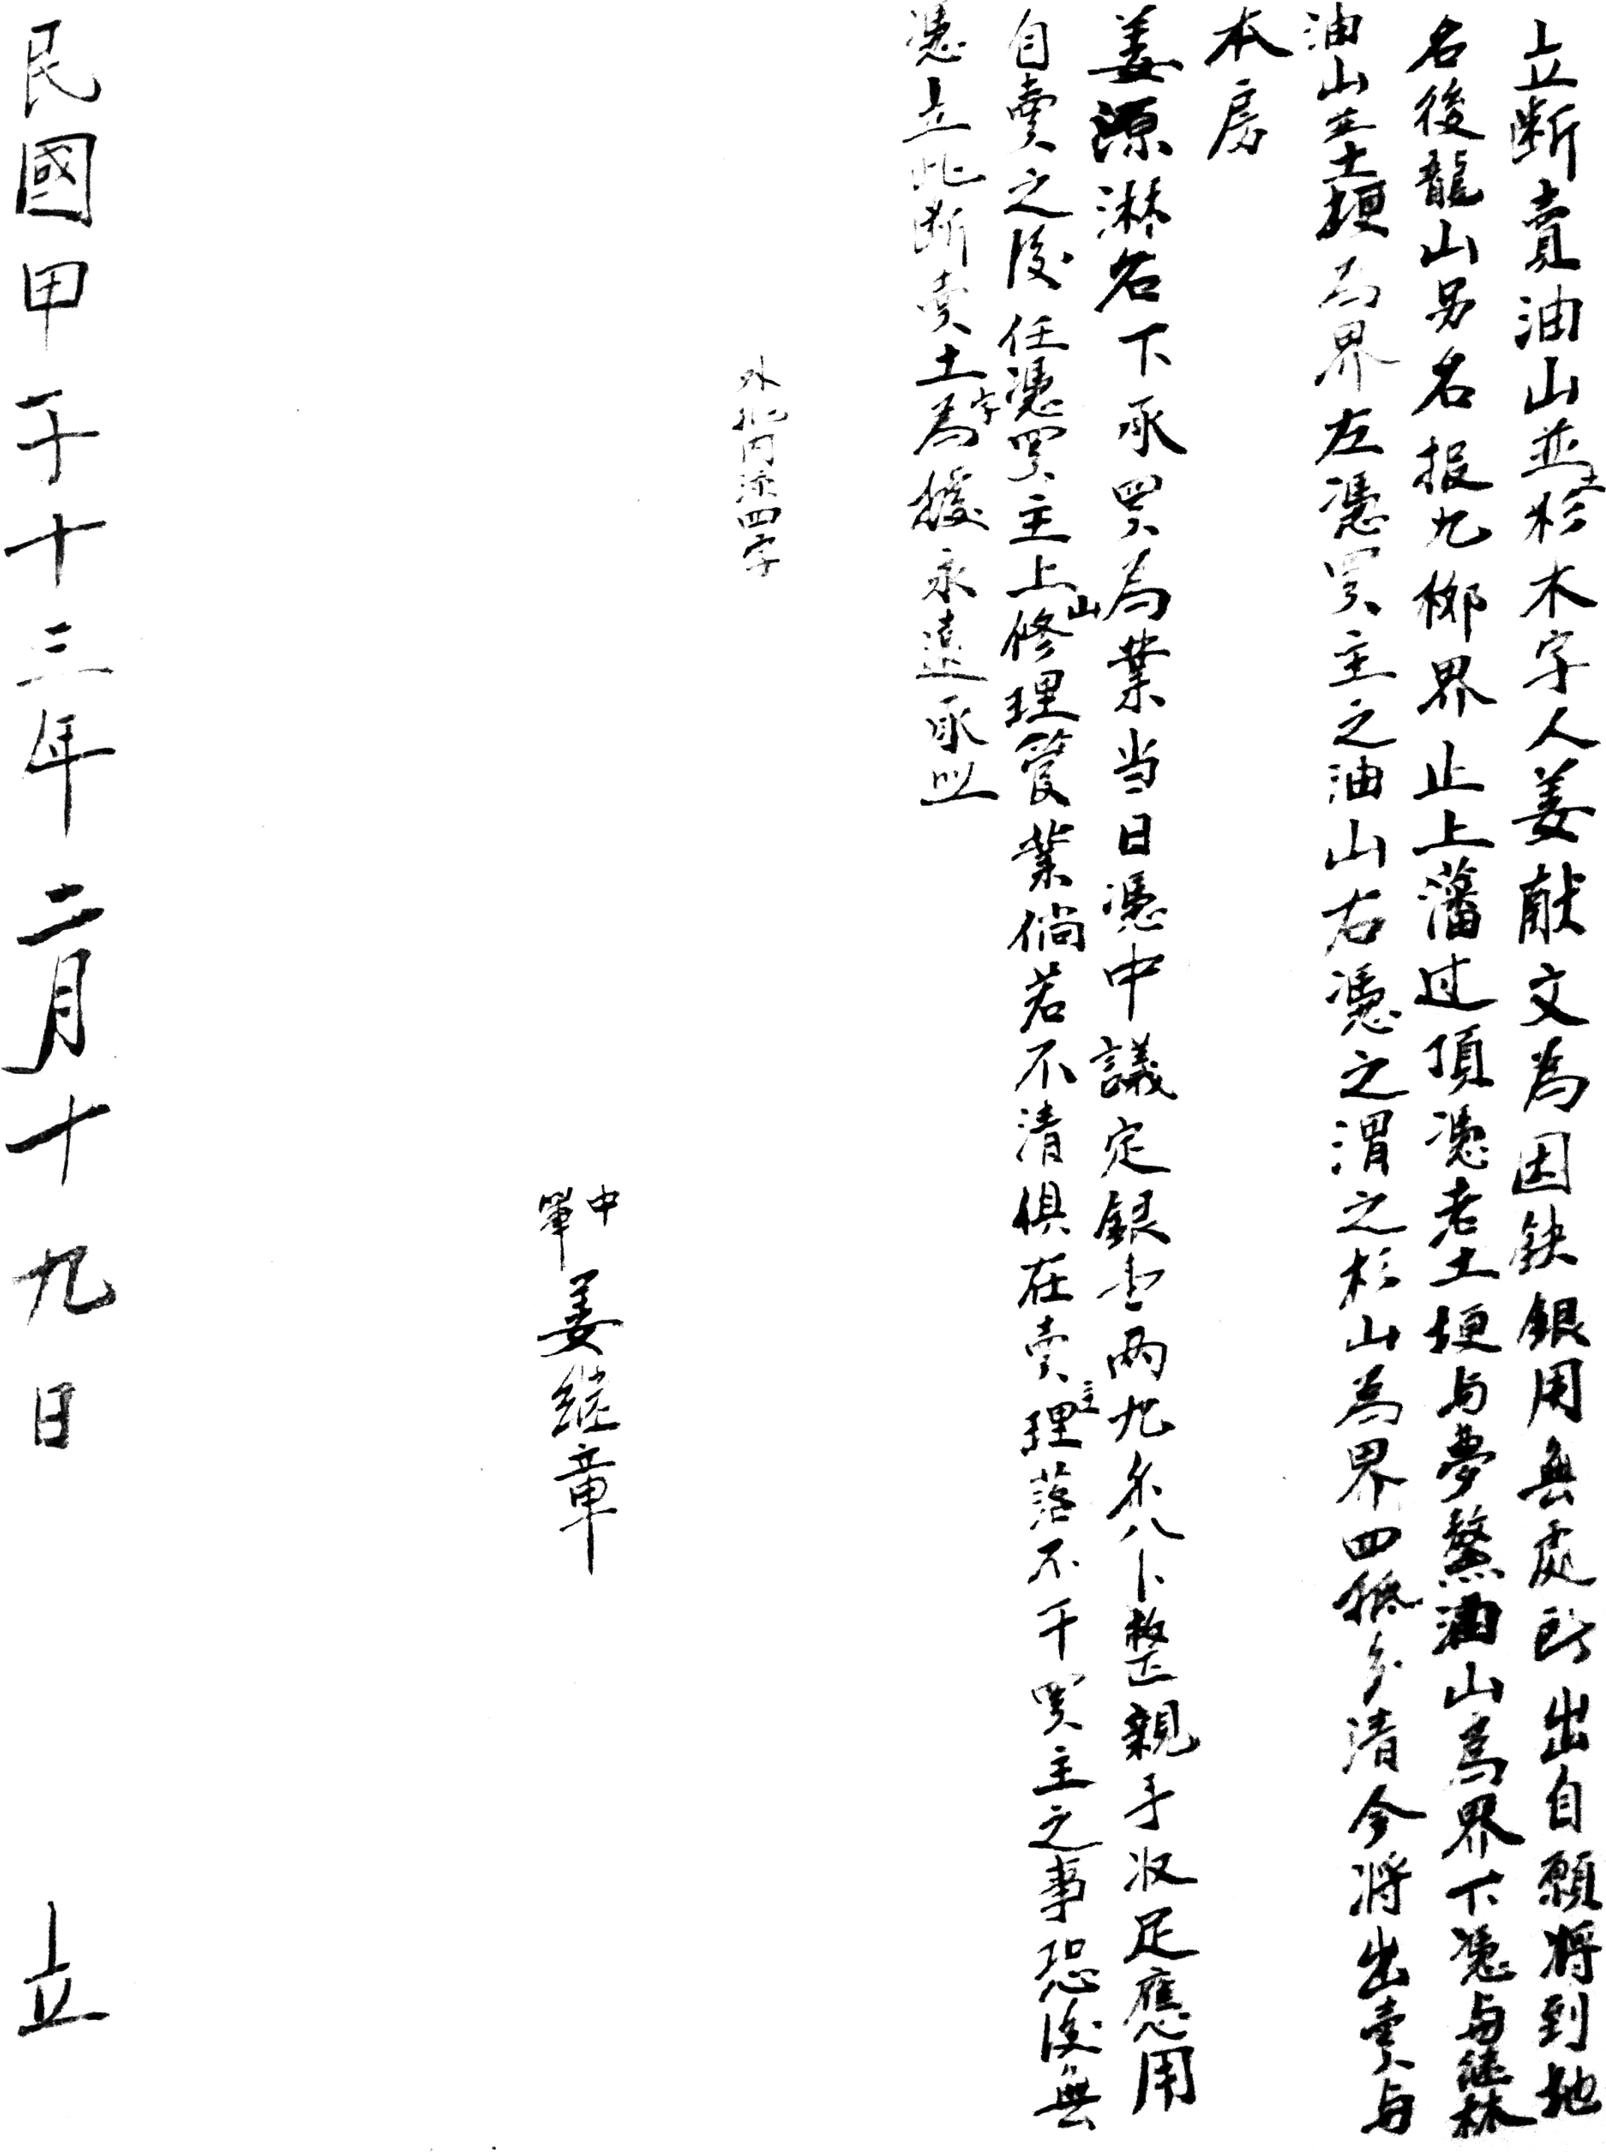 立断賣油山並土杉木字人姜献文為因缺銀用無處所出自願将到地
名後龍山另名报九榔界止上藩过頂憑老土埂与夢熬油山為界下憑与继林
油山土埂為界左憑買主之油山右憑之渭之杉山為界四抵分清今将出賣与
本房
姜源淋名下承買為業当日憑中議定銀壹两九八整親手收足應用
自賣之後任憑買主上山修理管業倘若不清俱在賣主理落不干買主之事恐後無
憑立此断賣土字為據永遠承照
外批内添四字
中筆姜继章
民國甲子十三年二月十九日 立